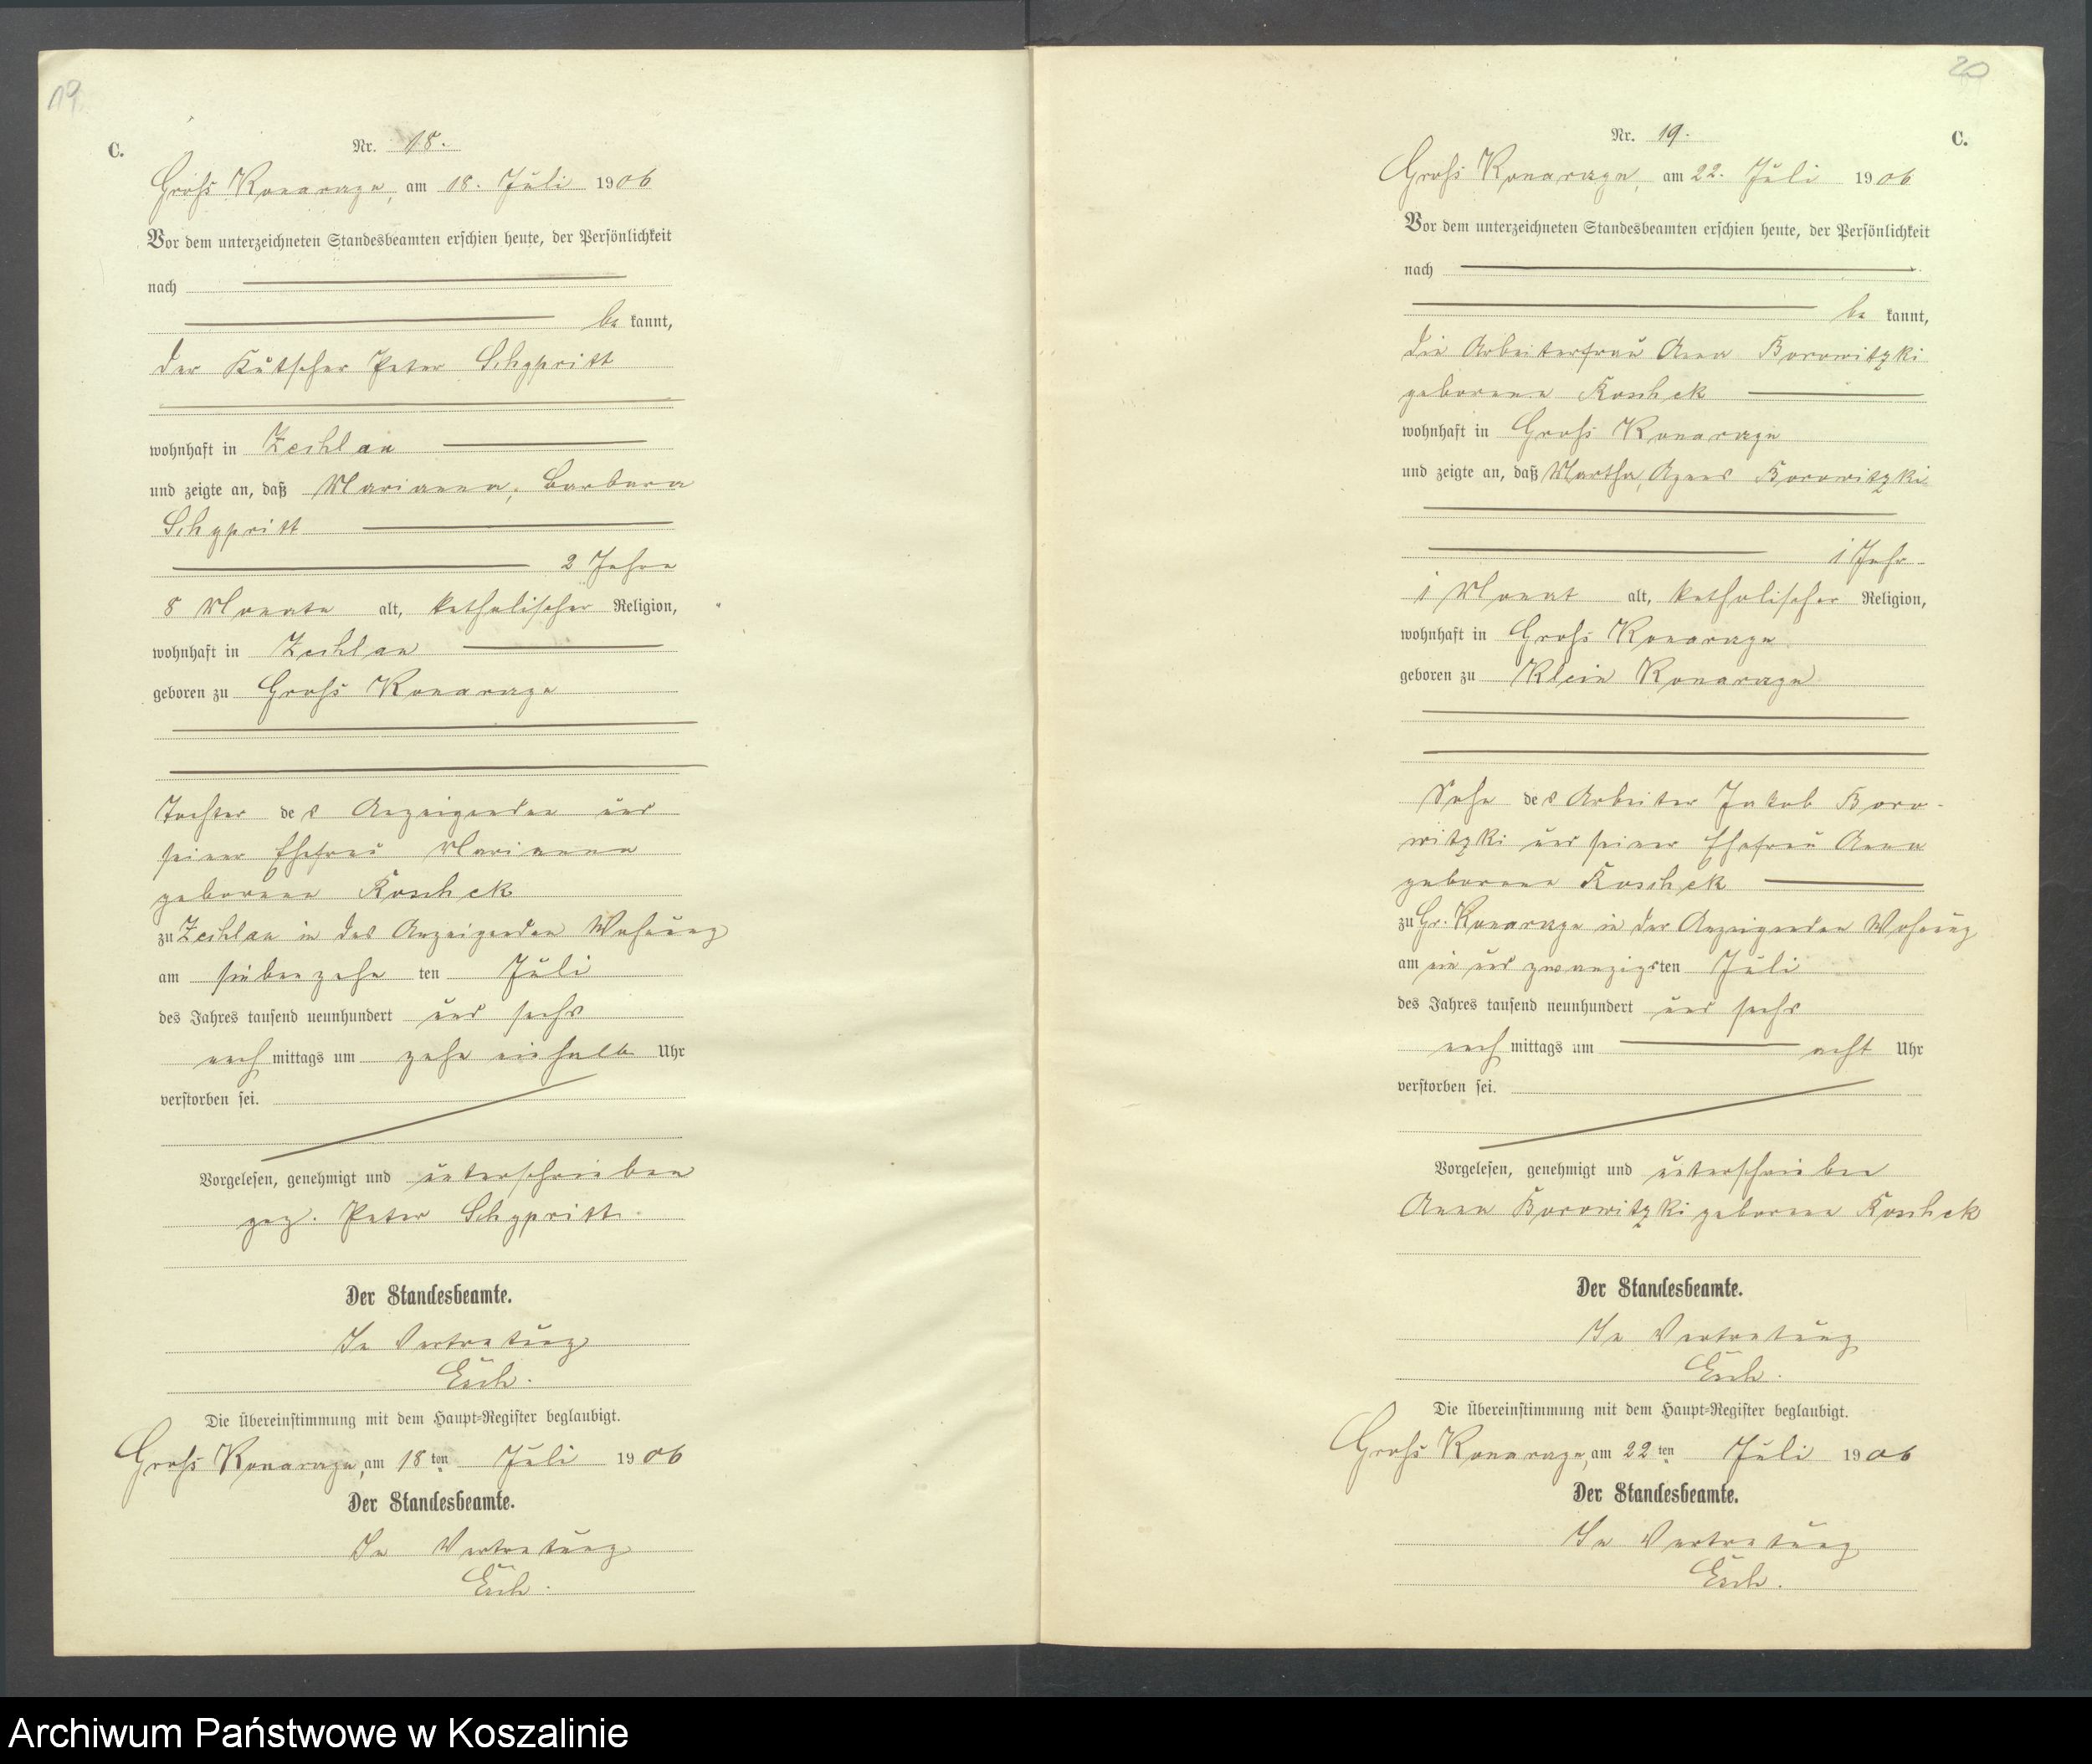 19
C.
Nr. 18.
Groß Konarczyn, am 18. Juli 1906
Vor dem unterzeichneten Standesbeamten erschien heute, der Persönlichkeit
nach
be kannt,
der Kutscher Peter
wohnhaft in Zechlau
und zeigte an, daß Marianna, Barbara
2 Jahre
8 Monate alt, katholischer Religion,
wohnhaft in Zechlau
geboren zu Groß Konarczyn
Tochter des Anzeigenden und
seiner Ehefrau Marianna
geborene Koschek
zu Zechlau in des Anzeigenden Wohnung
am siebenzehn ten Juli
des Jahres tausend neunhundert und sechs
nach mittags um zehn einhalb Uhr
verstorben sei.
Vorgelesen, genehmigt und unterschrieben
gez. Peter
Der Standesbeamte.
In Vertretung
Esch.
Die Übereinstimmung mit dem Haupt-Register beglaubigt.
Groß Konarczyn, am 18ten Juli 1906
Der Standesbeamte.
In Vertretung
Esch.
20
Nr. 19.
C.
Groß Konarczyn, am 22. Juli 1906
Vor dem unterzeichneten Standesbeamten erschien heute, der Persönlichkeit
nach
be kannt,
die Arbeiterfrau Anna Borowitzki
geborene Koschek
wohnhaft in Groß Konarczyn
und zeigte an, daß Martha, Agnes Borowitzki
1 Jahr
1 Monat alt, katholischer Religion,
wohnhaft in Groß Konarczyn
geboren zu Klein Konarczyn
des Arbeiter Jakob Boro-
witzki und seiner Ehefrau Anna
geborene Koschek
zu Gr. Konarczyn in der Anzeigenden Wohnung
am ein und zwanzigsten Juli
des Jahres tausend neunhundert und sechs
nach mittags um acht Uhr
verstorben sei.
Vorgelesen, genehmigt und unterschrieben
Anna Borowitzki geborene Koschek
Der Standesbeamte.
In Vertretung
Esch.
Die Übereinstimmung mit dem Haupt-Register beglaubigt.
Groß Konarczyn, am 22ten Juli 1906
Der Standesbeamte.
In Vertretung
Esch.
Archiwum Państwowe w Koszalinie